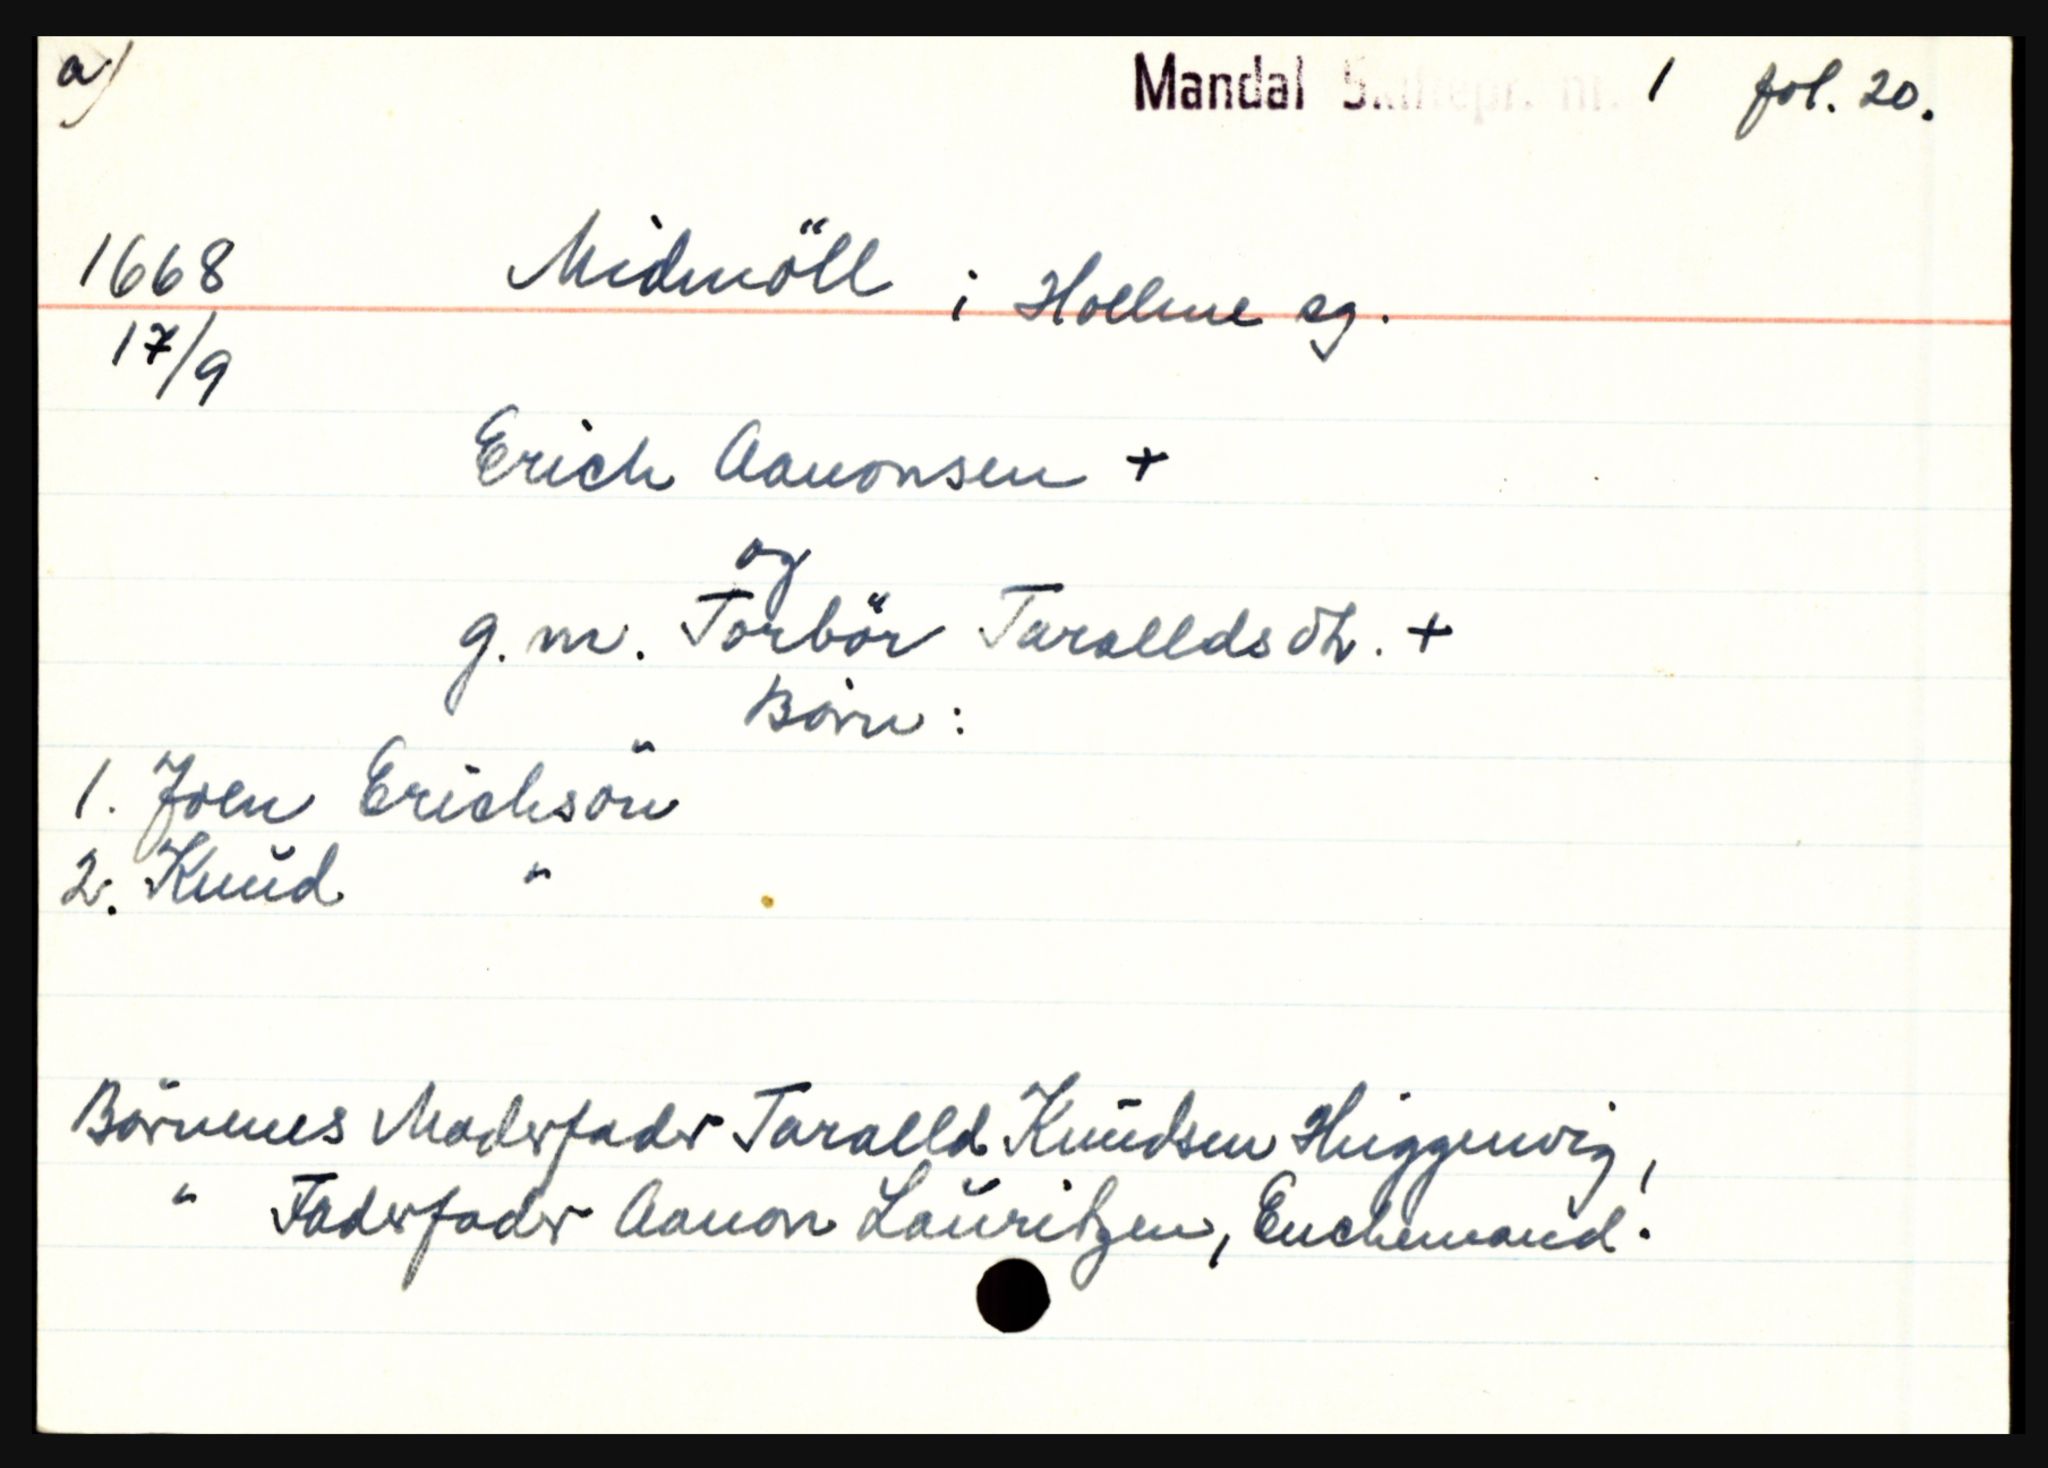 a/ Mandal Skiftepr. nr. 1 fol. 20.
1668 Midmöll i Hollme sg.
17/9
Erich Aanonsen +
og
g. m. Torbör Taralldsdtr. +
Börn:
1. Joen Erichsön
2. Knŭd "
Börnenes Moderfader Taralld Knŭdsen Higgenvig,
" Faderfader Aanon Laŭritzen, Enchemand.